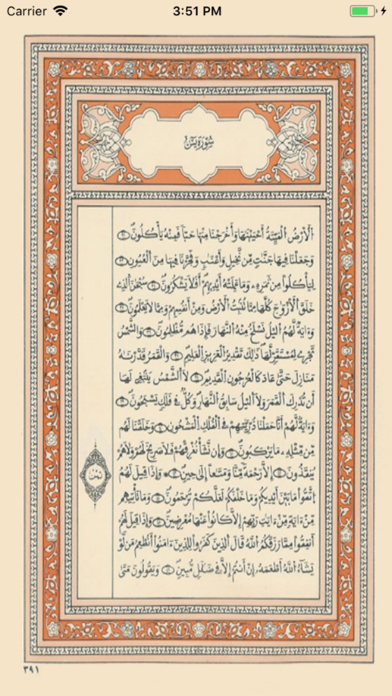 Carrier 3:51 PM
سورة يس
الأرض الميتة أحييناها وأخرجنا منها حبا فمنه يأكلون
وجعلنا فيها جنات من نخيل وأعناب وفجرنا فيها من العيون
ليأكلوا من ثمره وما عملته أيديهم أفلا يشكرون سبحان الذي
خلق الأزواج كلها مما تنبت الأرض ومن أنفسهم ومما لا يعلمون
وءاية لهم اليل نسلخ منه النهار فإذا هم مظلمون والشمس
تجري لمستقر لها ذلك تقدير العزيز العليم والقمر قدرناه
منازل حتى عاد كالعرجون القديم لا الشمس ينبغي لها
أن تدرك القمر ولا اليل سابق النهار وكل في فلك يسبحون
وءاية لهم أنا حملنا ذريتهم في الفلك المشحون وخلقنا لهم
من مثله ما يركبون وإن نشأ نغرقهم فلا صريخ لهم ولا هم
ينقذون إلا رحمة منا ومتاعا إلى حين وإذا قيل لهم
اتقوا ما بين أيديكم وما خلفكم لعلكم ترحمون وما تأتيهم
من ءاية من ءايات ربهم إلا كانوا عنها معرضين وإذا قيل لهم
أنفقوا مما رزقكم الله قال الذين كفروا للذين ءامنوا أنطعم من لو
يشاء الله أطعمه إن أنتم إلا في ضلال مبين ويقولون متى
٣٩١